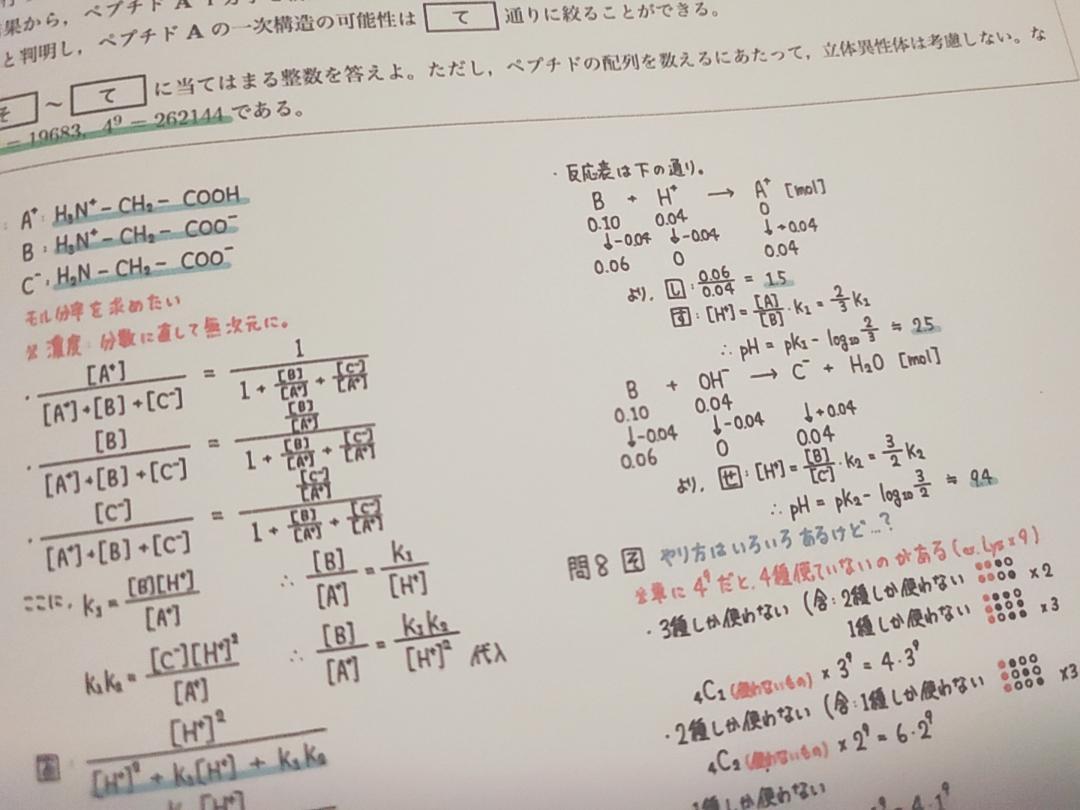 果から，ペプチド A 1 分子を
と判明し，ペプチド A の一次構造の可能性は て 通りに絞ることができる。
そ ～ て に当てはまる整数を答えよ。ただし，ペプチドの配列を数えるにあたって，立体異性体は考慮しない。な
= 19683, 4⁹ = 262144 である。
A⁺: H₃N⁺－CH₂－COOH
B : H₃N⁺－CH₂－COO⁻
C⁻: H₂N－CH₂－COO⁻
モル分率を求めたい
※濃度：分数に直して無次元に。
・[A⁺]/([A⁺]+[B]+[C⁻]) = 1/(1+[B]/[A⁺]+[C⁻]/[A⁺])
・[B]/([A⁺]+[B]+[C⁻]) = ([B]/[A⁺])/(1+[B]/[A⁺]+[C⁻]/[A⁺])
・[C⁻]/([A⁺]+[B]+[C⁻]) = ([C⁻]/[A⁺])/(1+[B]/[A⁺]+[C⁻]/[A⁺])
ここに，K₁=[B][H⁺]/[A⁺] ∴ [B]/[A⁺]=K₁/[H⁺]
K₁K₂=[C⁻][H⁺]²/[A⁺] ∴ [B]/[A⁺]=K₁K₂/[H⁺]² 代入
[H⁺]²/([H⁺]²+K₁[H⁺]+K₁K₂)
K₁[H⁺]
・反応表は下の通り。
B + H⁺ → A⁺ [mol]
0.10 0.04 0
↓-0.04 ↓-0.04 ↓+0.04
0.06 0 0.04
より，し：0.06/0.04 = 1.5
す：[H⁺]=[A]/[B]・K₁=2/3 K₁
∴ pH = pK₁ - log₁₀ 2/3 ≒ 2.5
B + OH⁻ → C⁻ + H₂O [mol]
0.10 0.04
↓-0.04 ↓-0.04 ↓+0.04
0.06 0 0.04
より，せ：[H⁺]=[B]/[C⁻]・K₂=3/2 K₂
∴ pH = pK₂ - log₁₀ 3/2 ≒ 9.4
問8 そ やり方はいろいろあるけど…?
※単に 4⁹ だと，4種使っていないのがある (ex. Lys×9)
・3種しか使わない (含：2種しか使わない ×2
1種しか使わない ×3
₄C₁(使わないもの) × 3⁹ = 4・3⁹
・2種しか使わない (含：1種しか使わない ×3
₄C₂(使わないもの) × 2⁹ = 6・2⁹
1種しか使わない